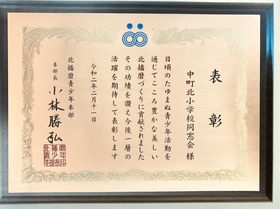 表彰
中町北小学校同窓会様
日頃のたゆまぬ青少年活動を
通じてこころ豊かな美しい
北播磨づくりに貢献されました
その功績を讃え今後一層の
活躍を期待して表彰します
令和二年二月十一日
北播磨青少年本部
本部長 小林勝弘